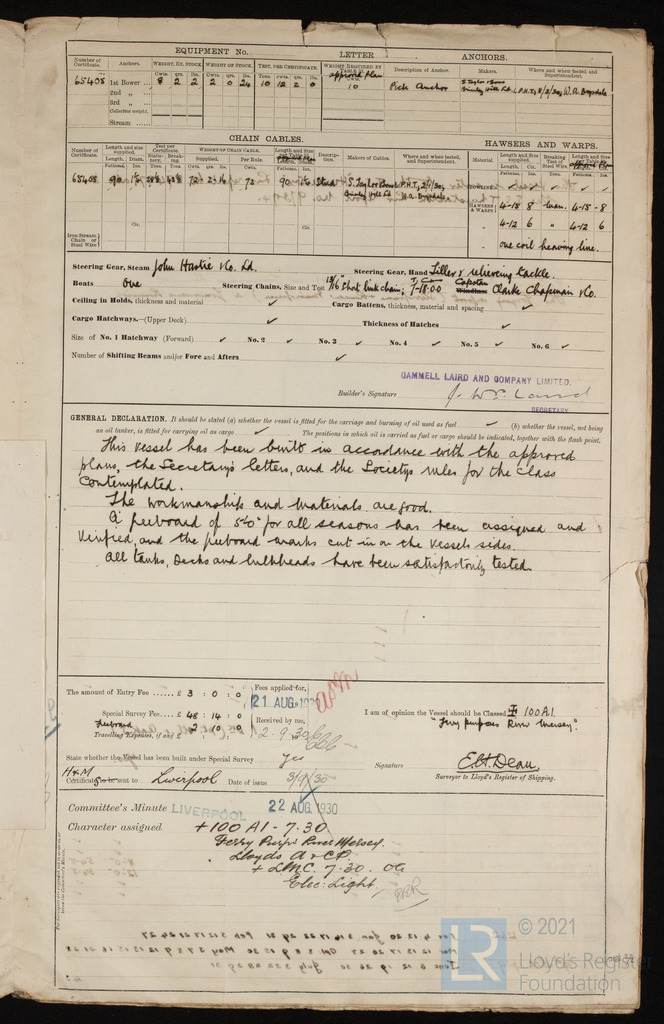 EQUIPMENT No.
LETTER
ANCHORS.
Number of Certificate. Anchors. Weight, Ex. Stock Weight of Stock. Test, per Certificate. Weight Required by Description of Anchor. Makers. Where and when tested and Superintendent.
Cwts. qrs. lbs. Cwts. qrs. lbs. Tons. cwts. qrs. lbs.
65405 1st Bower 8 2 2 2 0 24 10 12 2 0 10 Pick Anchor
2nd „
3rd „
Collective weight.
Stream
CHAIN CABLES.
HAWSERS AND WARPS.
Number of Certificate. Length and size supplied. Test per Certificate. Weight of Chain Cable. Makers of Cables. Where and when tested, and Superintendent. Material. Length and size supplied. Breaking Test of
Supplied. Per Rule.
65405 90 72 72 90 Stud
HAWSERS & WARPS 4-15 8 4-15-8
4-12 6 „ 4-12 6
one coil heaving line.
Iron Stream Chain or Steel Wire
Steering Gear, Steam John Hastie & Co. Ld. Steering Gear, Hand Tiller & relieving tackle.
Boats One Steering Chains, Size and Test 13/16" Short link chain; Capstan Windlass Clarke Chapman & Co.
Ceiling in Holds, thickness and material ✓ Cargo Battens, thickness, material and spacing ✓
Cargo Hatchways.—(Upper Deck) ✓ Thickness of Hatches ✓
Size of No. 1 Hatchway (Forward) ✓ No. 2 ✓ No. 3 ✓ No. 4 ✓ No. 5 ✓ No. 6 ✓
Number of Shifting Beams and/or Fore and Afters ✓
CAMMELL LAIRD AND COMPANY LIMITED.
Builder's Signature
SECRETARY
GENERAL DECLARATION. It should be stated (a) whether the vessel is fitted for the carriage and burning of oil used as fuel ✓ (b) whether the vessel, not being
an oil tanker, is fitted for carrying oil as cargo ✓ The positions in which oil is carried as fuel or cargo should be indicated, together with the flash point.
This vessel has been built in accordance with the approved
plans, the Secretary's letters, and the Society's rules for the class
contemplated.
The workmanship and materials are good.
A freeboard of 5'-0" for all seasons has been assigned and
verified, and the freeboard marks cut in on the vessels sides.
All tanks, decks and bulkheads have been satisfactorily tested.
The amount of Entry Fee ...... £ 3 : 0 : 0
Fees applied for,
21 AUG. 1930
Special Survey Fee... £ 48 : 14 : 0
Received by me,
Freeboard
Travelling Expenses, if any £
2.9.30
I am of opinion the Vessel should be Classed ✠ 100A1.
"Ferry purposes River Mersey".
State whether the Vessel has been built under Special Survey Yes
Signature
Surveyor to Lloyd's Register of Shipping.
H & M
Certificate to be sent to Liverpool Date of issue 3/9/30
Committee's Minute LIVERPOOL 22 AUG. 1930
Character assigned + 100 A1 - 7.30
Ferry Purps River Mersey.
Lloyds A & CP.
+ LMC. 7.30. OG
Elec: Light
LR
© 2021
Lloyd's Register
Foundation